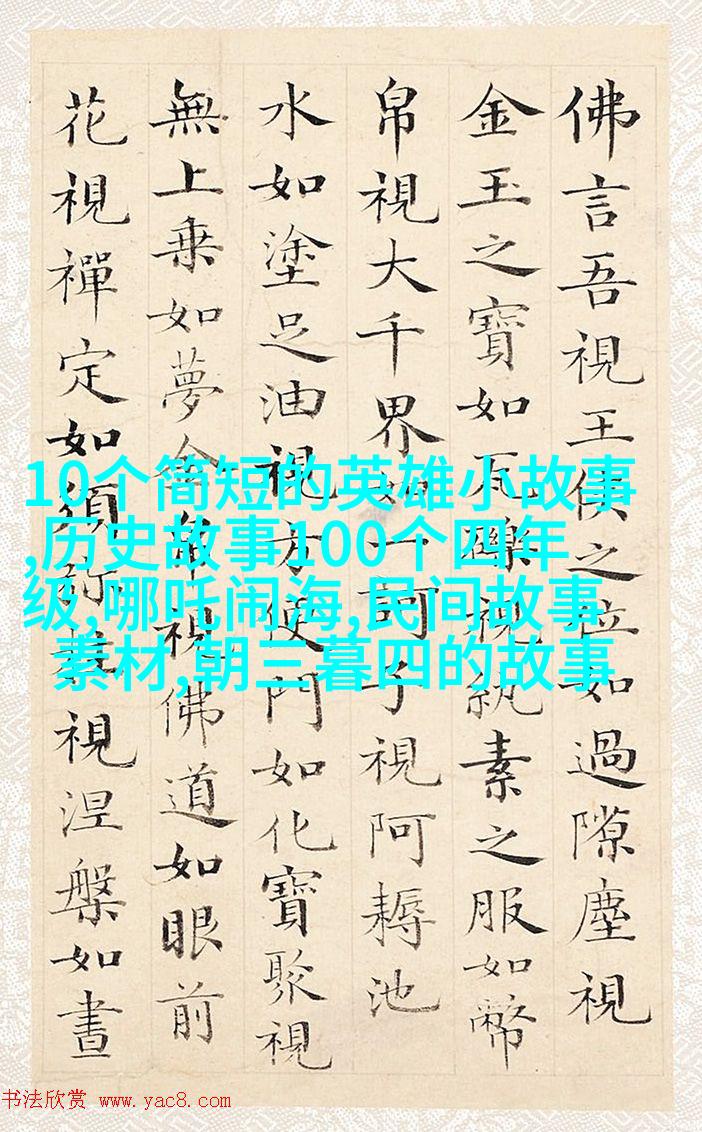 佛言吾視王侯之位如過隙塵視
金玉之寶如瓦礫視紈素之服如幣
帛視大千界如一訶子視阿耨池
水如塗足油視方便門如化寶聚視
無上乗如夢金帛視佛道如眼前
花視禪定如須弥柱視涅槃如晝
10个简短的英雄小故事
,历史故事100个四年
级,哪吒闹海,民间故事
素材,朝三暮四的故事
书法欣赏 www.yac8.com